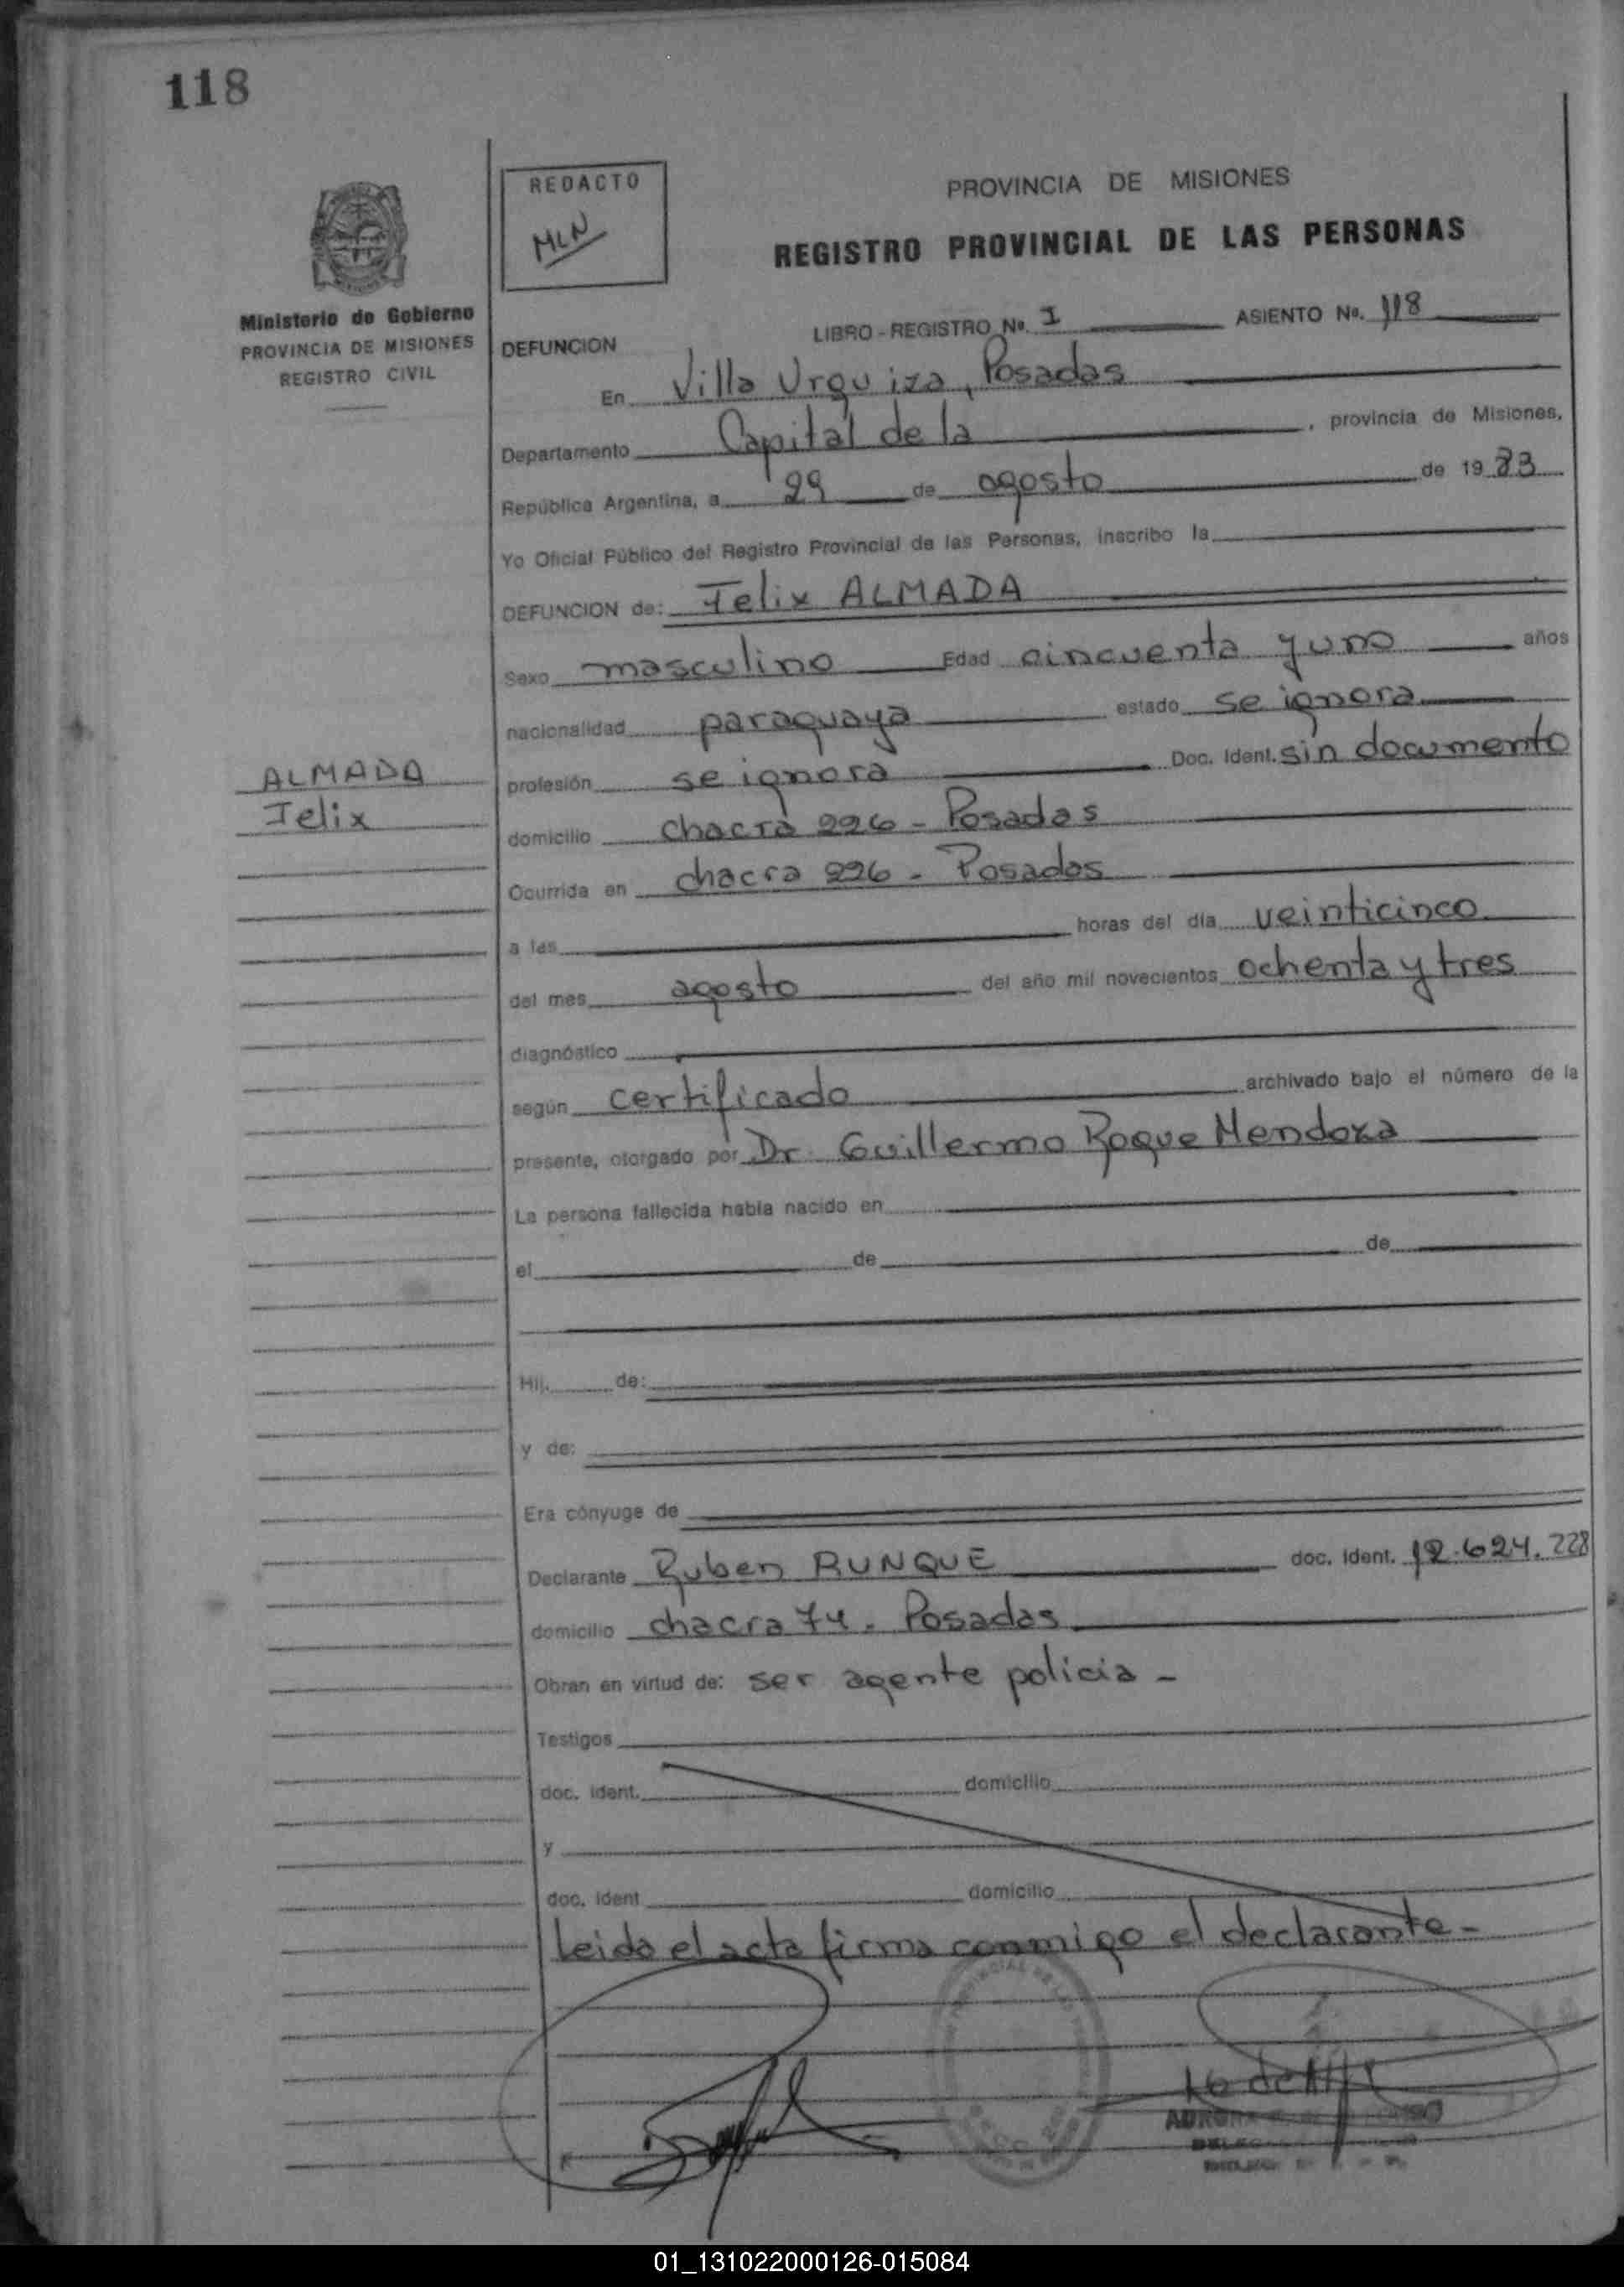 118
REDACTO
MLN
PROVINCIA DE MISIONES
REGISTRO PROVINCIAL DE LAS PERSONAS
Ministerio de Gobierno
PROVINCIA DE MISIONES
REGISTRO CIVIL
LIBRO - REGISTRO No. I ASIENTO No. 118
DEFUNCION
En Villa Urquiza, Posadas
Departamento Capital de la , provincia de Misiones,
República Argentina, a 29 de agosto de 19 83
Yo Oficial Público del Registro Provincial de las Personas, inscribo la
DEFUNCION de: Felix ALMADA
Sexo masculino Edad cincuenta y uno años
nacionalidad paraguaya estado se ignora
ALMADA
Felix
profesión se ignora Doc. Ident. sin documento
domicilio chacra 226 - Posadas
Ocurrida en chacra 226 - Posadas
a las horas del día veinticinco
del mes agosto del año mil novecientos ochenta y tres
diagnóstico
según certificado archivado bajo el número de la
presente, otorgado por Dr. Guillermo Roque Mendoza
La persona fallecida había nacido en
el de de
Hij. de:
y de:
Era cónyuge de
Declarante Ruben RUNQUE doc. ident. 12.624.228
domicilio chacra 74 - Posadas
Obran en virtud de: ser agente policia -
Testigos
doc. ident. domicilio
y
doc. ident domicilio
Leida el acta firma conmigo el declarante -
01_131022000126-015084